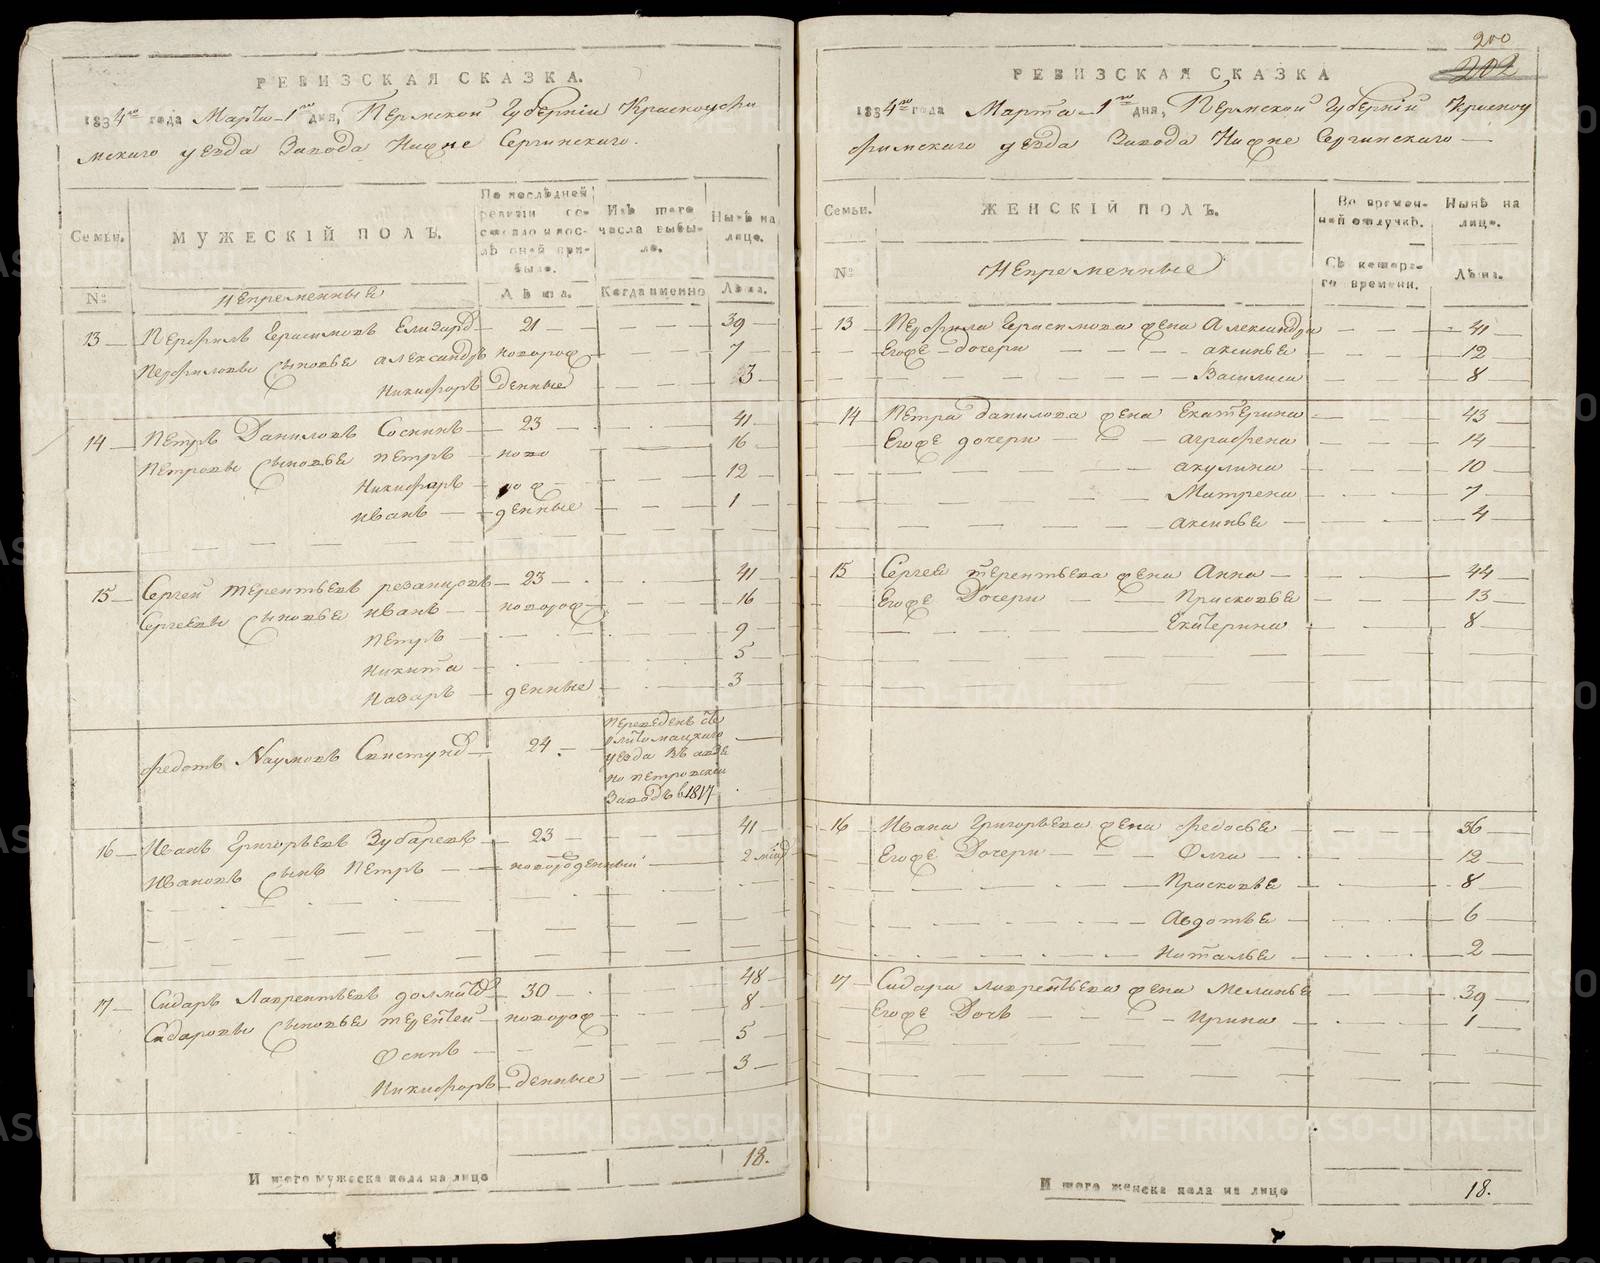 РЕВИЗСКАЯ СКАЗКА.
1834го года Марта 1го дня, Пермской Губерніи Красноуфи
мскаго уезда Завода Нижне Сергинскаго.
Семьи.
МУЖЕСКІЙ ПОЛЪ.
По послѣдней ревизіи состояло и послѣ оной прибыло.
Изъ того числа выбыло.
Нынѣ на лицо.
№
Непременные
Лѣта.
Когда именно
Лѣта.
13 Перфилъ Герасимовъ 21 39
Перфиловы сыновья александръ новорож 7
Никифоръ денные 3
14 Петръ Даниловъ Соснинъ 23 41
Петровы сыновья петръ ново 16
Никифоръ рож 12
иванъ денные 1
15 Сергей терентьевъ резанцовъ 23 41
Сергеевы сыновья иванъ новорож 16
петръ 9
никита 5
назаръ денные 3
федотъ Наумовъ 24 переведенъ
уезда въ
но петровской
Заводъ в 1817
16 Иванъ Григорьевъ Зубаревъ 23 41
Ивановъ сынъ Петръ новорожденный 2
17 Сидаръ Лаврентьевъ 30 48
Сидаровы сыновья терентей новорож 8
Осипъ 5
Никифоръ денные 3
И того мужеска пола на лицо 18.
200
202
РЕВИЗСКАЯ СКАЗКА
1834го года Марта 1го дня, Пермской Губерніи Красноу
фимскаго уезда Завода Нижне Сергинскаго
Семьи.
ЖЕНСКІЙ ПОЛЪ.
Во временной отлучкѣ.
Нынѣ на лицо.
№
Непременные
Съ котораго времени.
Лѣта.
13 Перфила Герасимова жена Александра 41
Егоже дочери аксинья 12
Василиса 8
14 петра данилова жена Екатерина 43
Егоже дочери аграфена 14
акулина 10
Матрена 7
аксинья 4
15 Сергея терентьева жена Анна 44
Егоже Дочери Прасковья 13
Екатерина 8
16 Ивана Григорьева жена федосья 36
Егоже Дочери Олга 12
Прасковья 8
Авдотья 6
Наталья 2
17 Сидара лаврентьева жена меланья 39
Егоже Дочь Ирина 1
И того женска пола на лицо 18.
METRIKI.GASO-URAL.RU